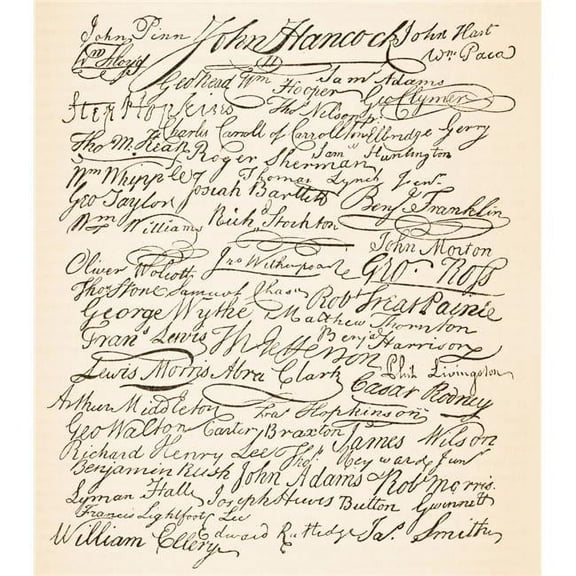 John Penn John Hancock John Hart
Wm Floyd Wm Paca
Geo Read Wm Hooper Saml Adams
Step Hopkins Thos Nelson jr Geo Clymer
Charles Carroll of Carrollton Elbridge Gerry
Thos M. Kean Roger Sherman Saml Huntington
Wm Whipple Thomas Lynch Junr.
Geo Taylon Josiah Bartlett Benj Franklin
Wm Williams Richd Stockton
John Morton
Oliver Wolcott Jno Witherspoon Geo. Ross
Thos Stone Samuel Chase Robt Treat Paine
George Wythe Matthew Thornton
Frans Lewis Th Jefferson Benj Harrison
Lewis Morris Abra Clark Phil. Livingston
Cæsar Rodney
Arthur Middleton Fras Hopkinson
Geo Walton Carter Braxton James Wilson
Richard Henry Lee Thos Heyward Junr
Benjamin Rush John Adams Robt Morris
Lyman Hall Joseph Hewes Button Gwinnett
Francis Lightfoot Lee
William Ellery Edward Rutledge Jas. Smith